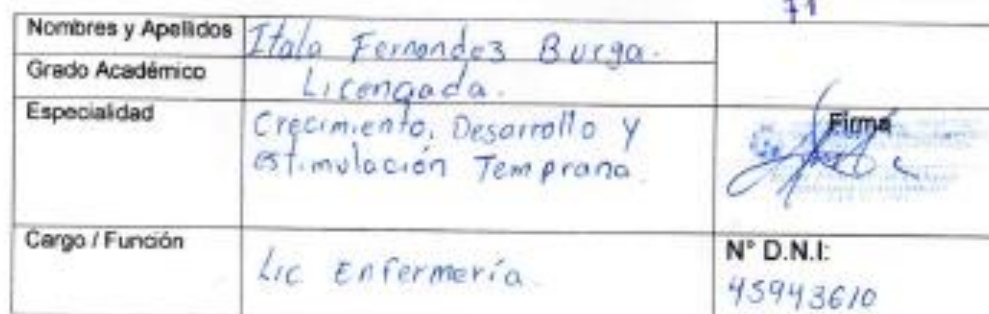 71
Nombres y Apellidos Itala Fernandez Burga.
Grado Académico Licenciada.
Especialidad Crecimiento, Desarrollo y
estimulación Temprana.
Firma
Cargo / Función Lic Enfermería.
N° D.N.I:
45943610